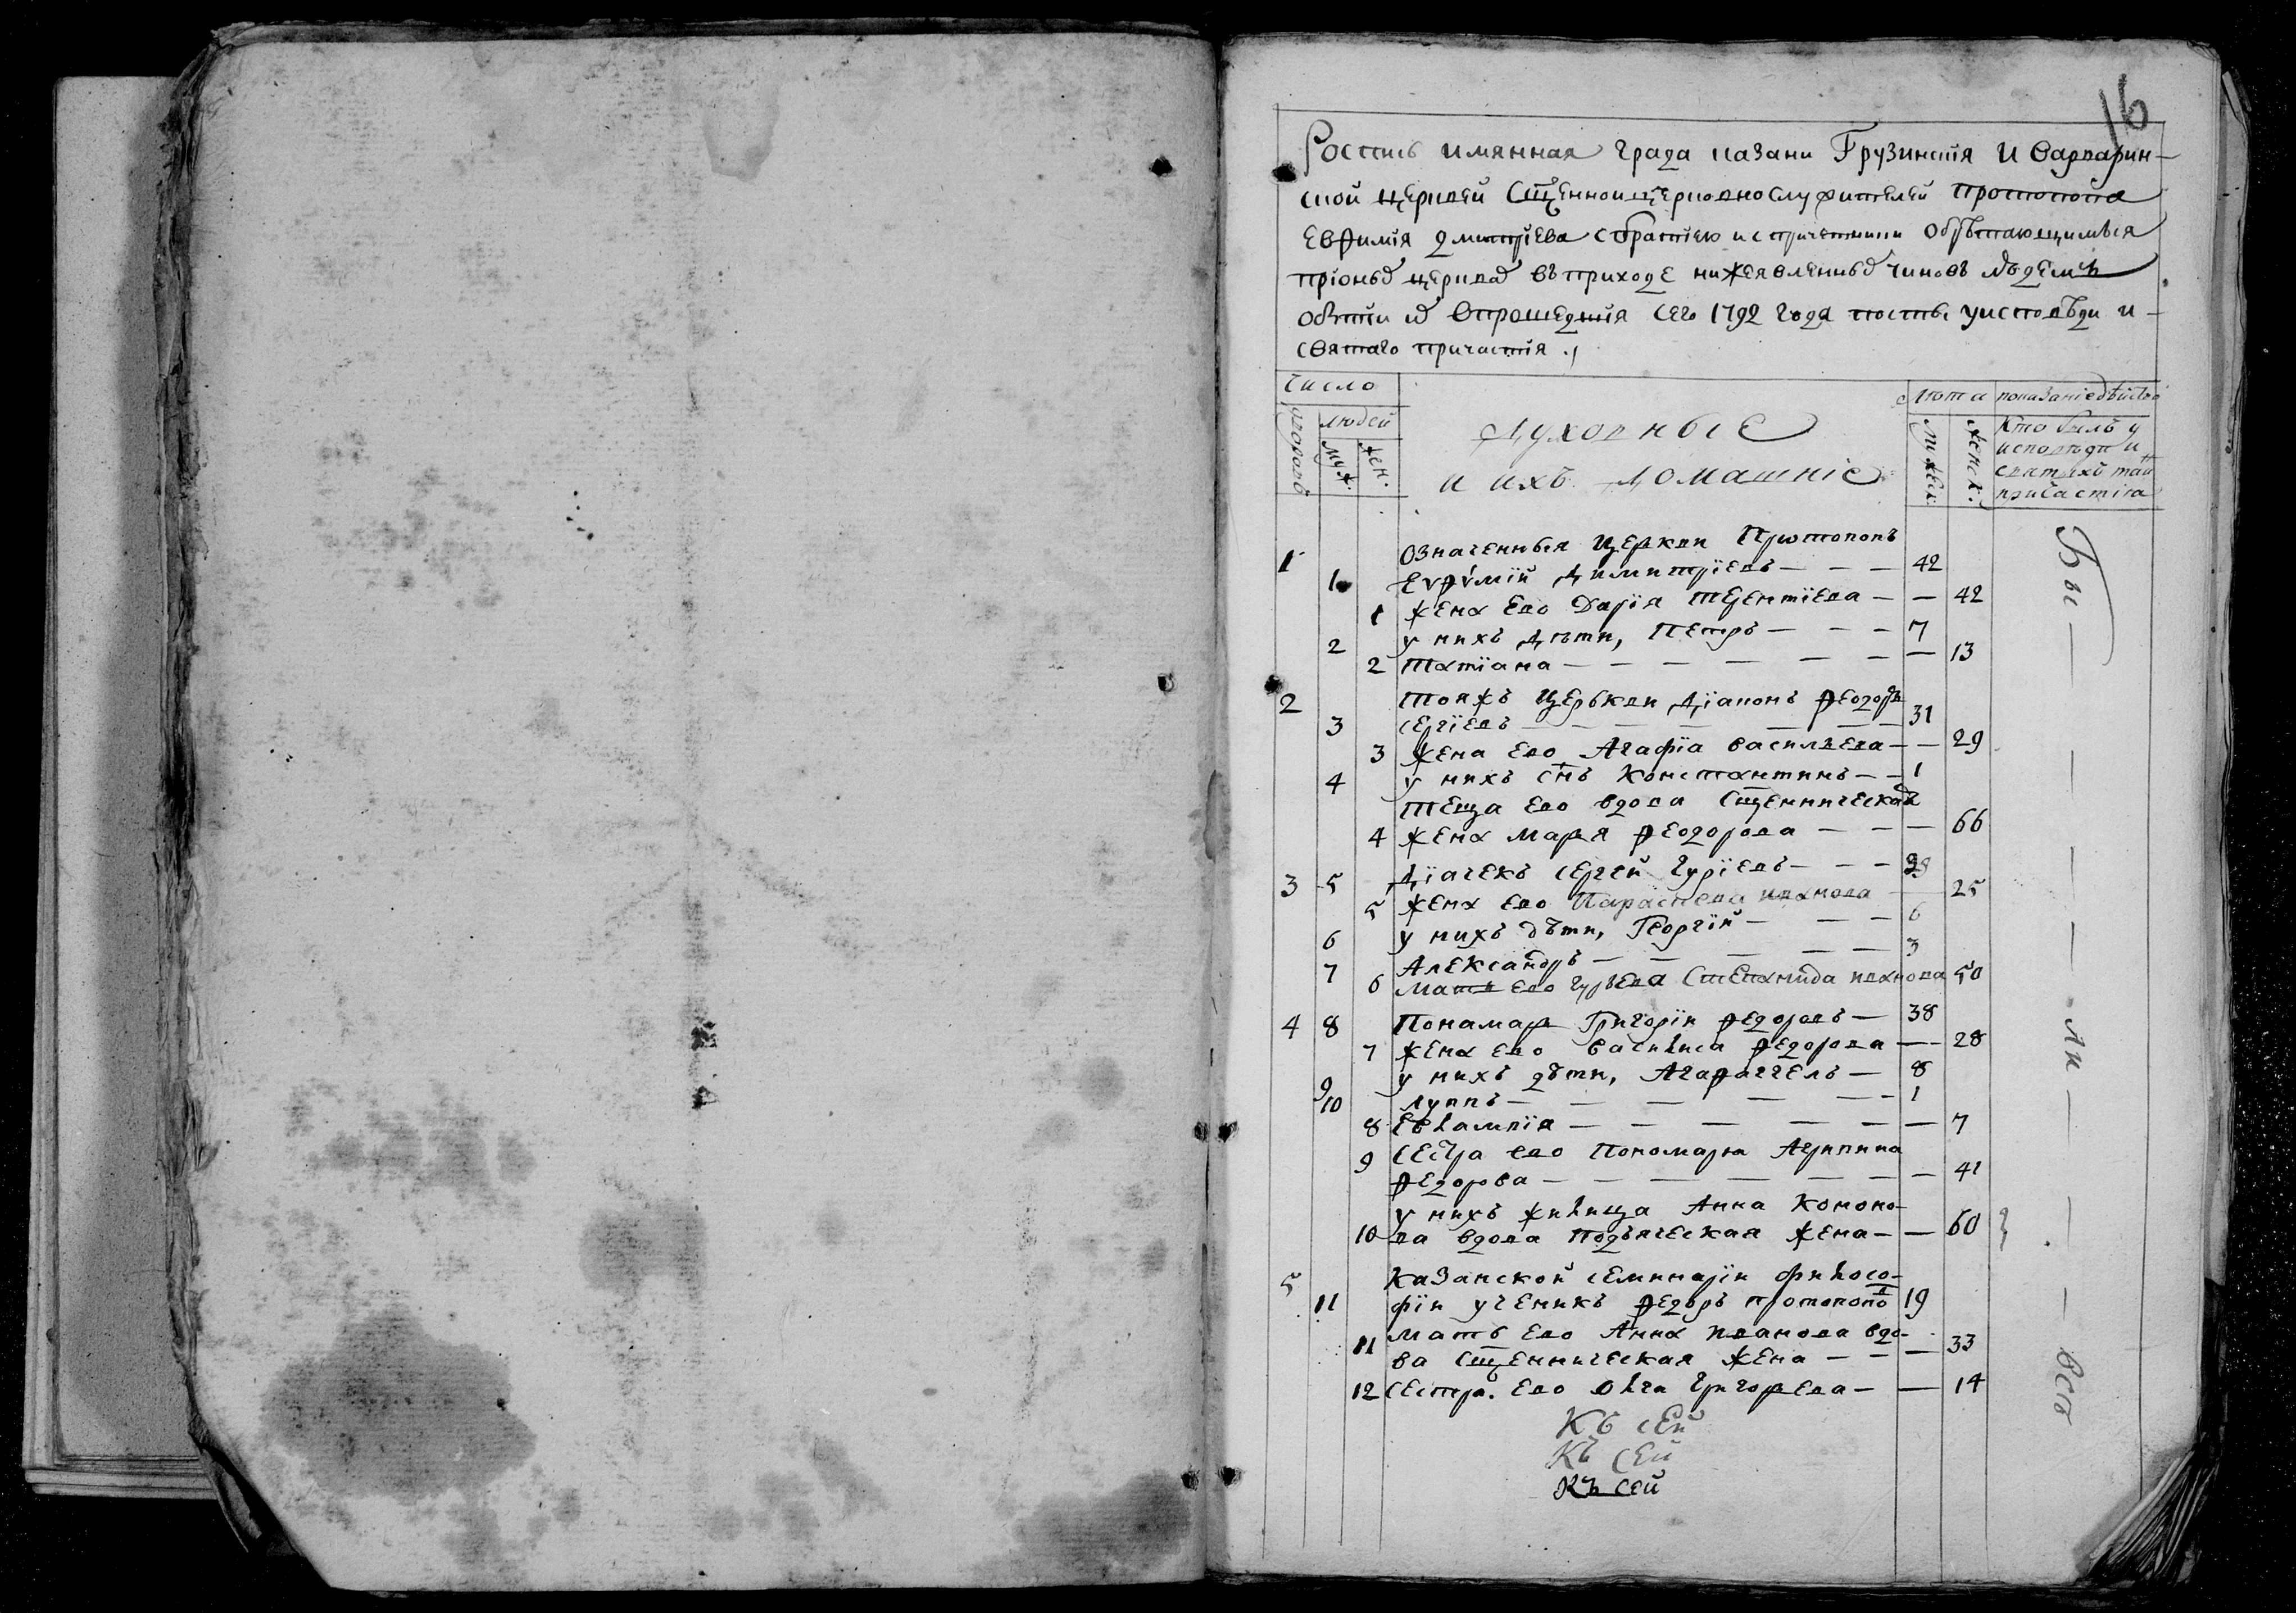 16
Роспись имянная града казани Грузинскiя и Варварин-
ской церквей Сщенноицерковнослужителей протопопа
Евфимiя Дмитрiева сбратiею испричетники обрѣтающимъся
прионыхъ церквахъ въ приходе нижеявленныхъ чиновъ людемъ
вопрошедшiя сего 1792 года посты уисповѣди и-
святаго причастiя
Число
лѣта показанiедѣйство
дворовъ
людей
муж.
жен.
Духовные
и ихъ домашнiе
мужеск.
женск.
Кто былъ у
исповѣди и
святыхъ таи
причастiя
1 Означенныя церкви Протопопъ
1 Еvфимiй Димитрiевъ — — — 42
1 жена Ево Дарiя Терентiева — — 42
2 у нихъ дѣти, Петръ — — — 7
2 Татiана — — — — — — — 13
2 Тояжъ Церькви Дiаконъ Феодоръ
3 Сергiевъ — — — — — — 31
3 жена ево Агафiа васильева — — 29
4 у нихъ снъ Константинъ — — 1
Теща Ево вдова Сщенническая
4 жена Марья Феодорова — — — 66
3 5 Дiачекъ Сергей Гурiевъ — — —
5 жена ево Параскева иванова — 25
6 у нихъ дѣти, Георгiй — — — 6
7 Александръ — — — — — 3
6 Мать ево Гурьева Степанида иванова 50
4 8 Понамарь Григорiи Федоровъ — 38
7 жена ево Василиса Федорова — — 28
9 у нихъ дѣти, Агафаггелъ — 8
10 Луппъ — — — — — — 1
8 Евлампiя — — — — — — — 7
9 Сестра ево Пономаря Агрипина
Федорова — — — — — — — 41
у нихъ жилица Анна Кононо-
10 ва вдова Подьяческая жена — — 60
5 Казанской семинарiи филосо-
11 фiи ученикъ Федоръ протопопо 19
11 мать Ево Анна иванова вдо-
ва Сщенническая жена — — — 33
12 Сестра. Ево Олга Григорьева — — 14
Бы — — — — — ли — — — всѣ
Къ сей
Къ сей
Къ сей